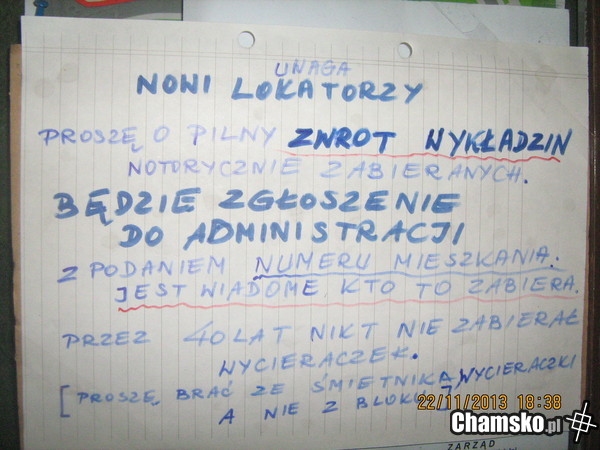 UWAGA
NOWI LOKATORZY
PROSZĘ O PILNY ZWROT WYKŁADZIN
NOTORYCZNIE ZABIERANYCH.
BĘDZIE ZGŁOSZENIE
DO ADMINISTRACJI
Z PODANIEM NUMERU MIESZKANIA.
JEST WIADOME, KTO TO ZABIERA.
PRZEZ 40 LAT NIKT NIE ZABIERAŁ
WYCIERACZEK.
[PROSZĘ BRAĆ ZE ŚMIETNIKA WYCIERACZKI
A NIE Z BLOKU]
22/11/2013 18:38
Chamsko.pl
ZARZĄD